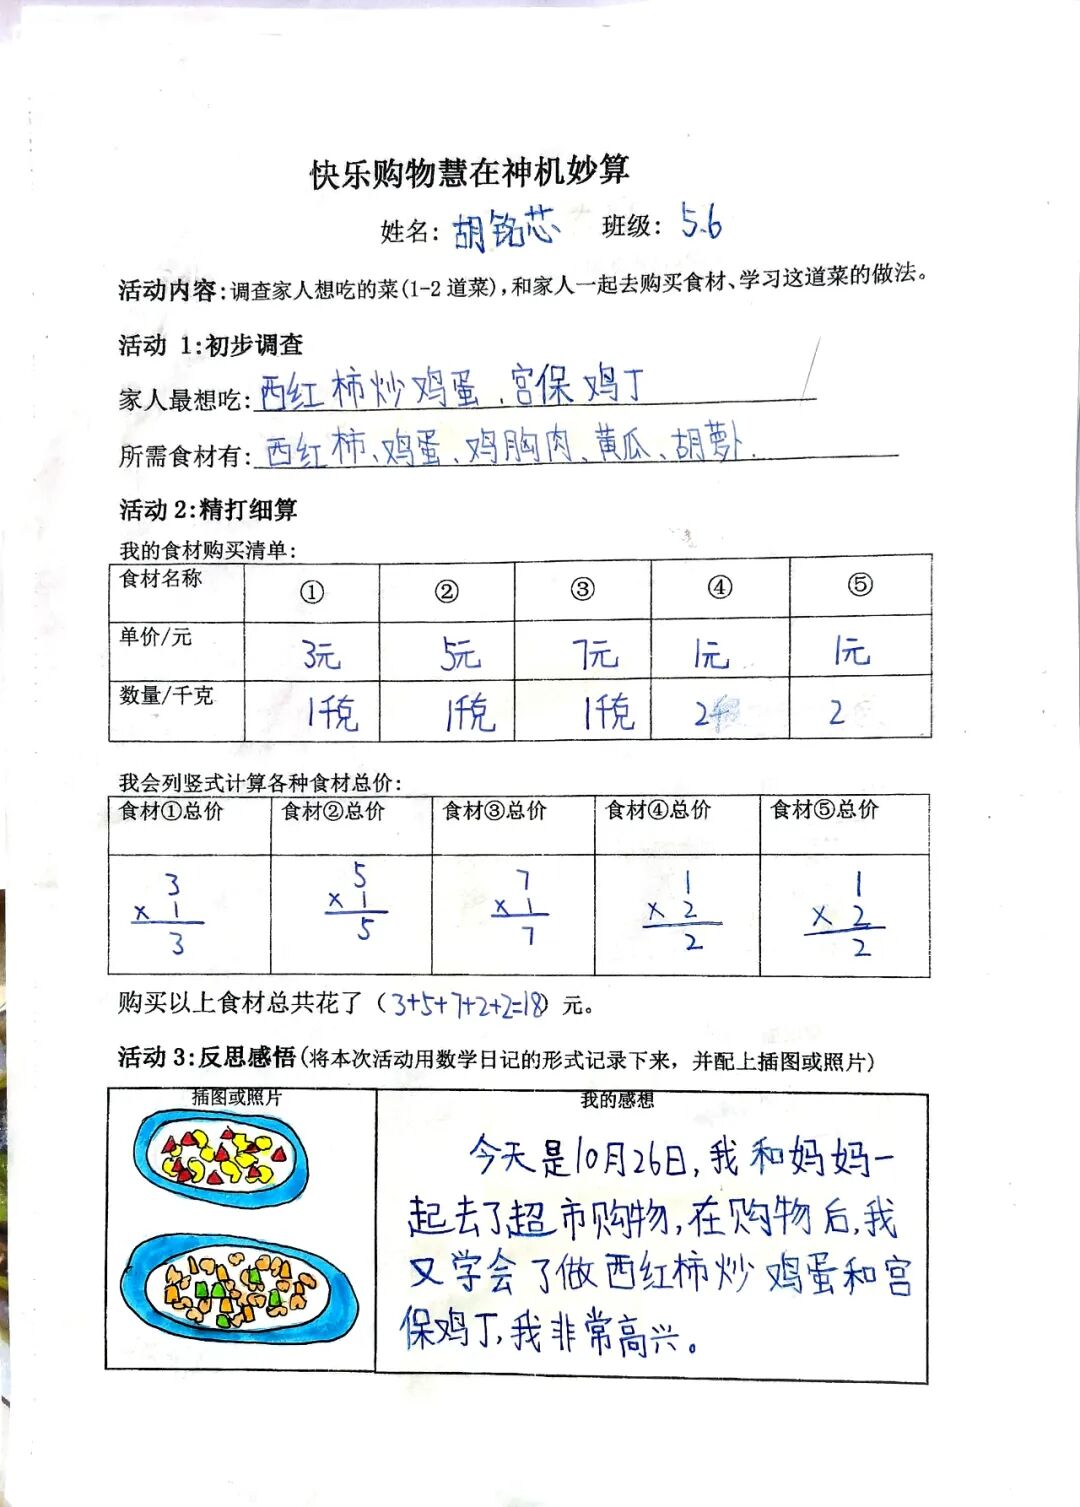 快乐购物慧在神机妙算
姓名: 胡铭芯 班级: 5.6
活动内容:调查家人想吃的菜(1-2道菜),和家人一起去购买食材、学习这道菜的做法。
活动 1:初步调查
家人最想吃: 西红柿炒鸡蛋、宫保鸡丁
所需食材有: 西红柿、鸡蛋、鸡胸肉、黄瓜、胡萝卜.
活动2:精打细算
我的食材购买清单:
食材名称 ① ② ③ ④ ⑤
单价/元 3元 5元 7元 1元 1元
数量/千克 1千克 1千克 1千克 2 2
我会列竖式计算各种食材总价:
食材①总价 食材②总价 食材③总价 食材④总价 食材⑤总价
3 5 7 1 1
× 1 × 1 × 1 × 2 × 2
3 5 7 2 2
购买以上食材总共花了(3+5+7+2+2=18)元。
活动3:反思感悟(将本次活动用数学日记的形式记录下来，并配上插图或照片)
插图或照片 我的感想
今天是10月26日,我和妈妈一
起去了超市购物,在购物后,我
又学会了做西红柿炒鸡蛋和宫
保鸡丁,我非常高兴。